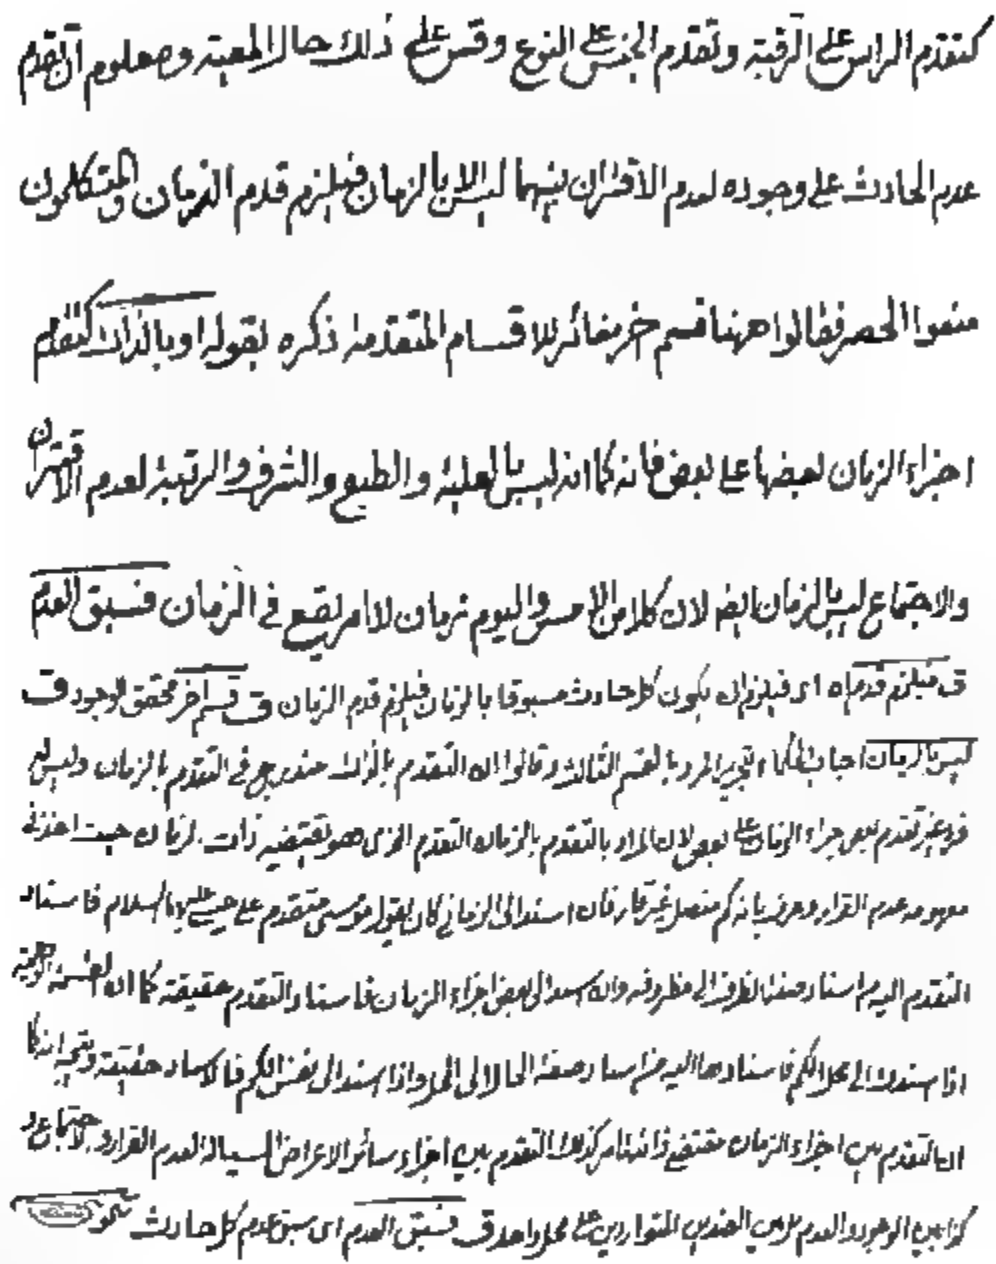 كتقدم الراس على الرقبة وتقدم الجنس على النوع وقس على ذلك حال المعية ومعلوم ان تقدم
عدم الحادث على وجوده لعدم الاقتران بينهما ليس الا بالزمان فيلزم قدم الزمان والمتكلمون
منعوا الحصر فقالوا ههنا قسم اخر مغائر للاقسام المتقدمة ذكره بقوله او بالذات كتقدم
اجزاء الزمان بعضها على بعض فانه كما انه ليس بالعلية والطبع والشرف والرتبة لعدم الاقتران
والاجتماع ليس بالزمان ايضا لان كلا من الامس واليوم زمان لا امر يقع في الزمان فسبق العدم
ق فيلزم قدمه اه اى فيلزم ان يكون كل حادث مسبوقا بالزمان فيلزم قدم الزمان ق قسم اخر محقق الوجود ق
ليس بالزمان اجاب الحكماء بالقسم الثالث وقالوا ان التقدم بالذات مندرج في التقدم بالزمان وليس
تقدم بعض اجزاء الزمان على بعض لان المراد بالتقدم بالزمان التقدم الذى هو تقتضيه ذات الزمان حيث اخذ في
مفهومه عدم القرار وعرف بانه كم متصل غير قار فان اسند الى الزماني كان يقول موسى متقدم على عيسى عليهما السلام فاسناد
التقدم اليه من اسناد صفة الظرف الى مظروفه وان اسند الى بعض اجزاء الزمان فاسناد التقدم حقيقة كما ان القسمة الوهمية
اذا اسندت الى محل الكم فاسنادها اليه من اسناد صفة الحال الى المحل واذا اسند الى نفس الكم فالاسناد حقيقة ويتجه انه كما
ان التقدم بين اجزاء الزمان مقتضى ذاتها كذلك التقدم بين اجزاء سائر الاعراض السيالة لعدم القرار والاجتماع و
كذا بين الوجود والعدم وبين الضدين المتواردين على محل واحد ق فسبق العدم اى سبق عدم كل حادث نحو